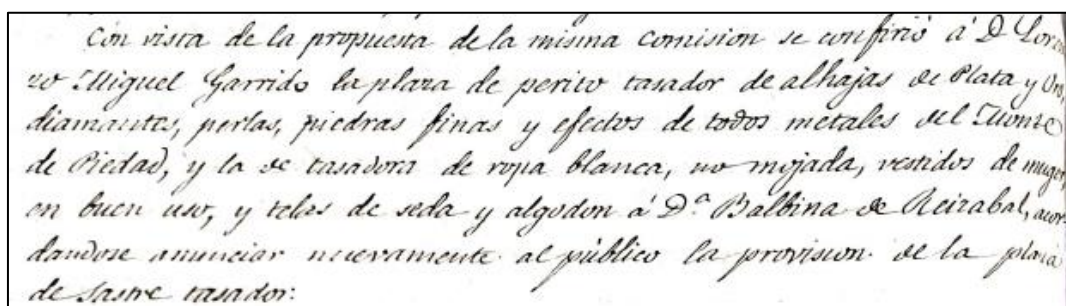 Con vista de la propuesta de la misma Comision se confirió á D Loren
zo Miguel Garrido la plaza de perito tasador de alhajas de Plata y Oro,
diamantes, perlas, piedras finas y efectos de todos metales del Monte
de Piedad, y la de tasadora de ropa blanca, no mojada, vestidos de muger,
en buen uso, y telas de seda y algodon á D.ª Balbina de Reizabal, acor
dandose anunciar nuevamente al público la provision de la plaza
de Sastre tasador: